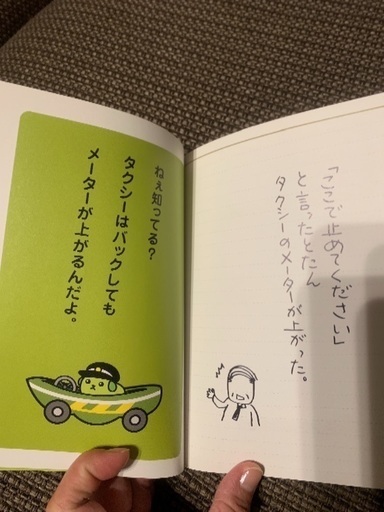 「ここで止めてください」
と言ったとたん
タクシーのメーターが上がった。
ねぇ知ってる？
タクシーはバックしても
メーターが上がるんだよ。